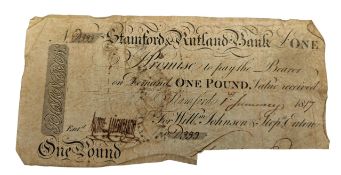 Stamford & Rutland Bank £ONE
I Promise to pay the Bearer
on Demand ONE POUND. Value received
Stamford 1 January 1817
For Willm. Johnson & Stepn. Eaton
Entd.
One Pound